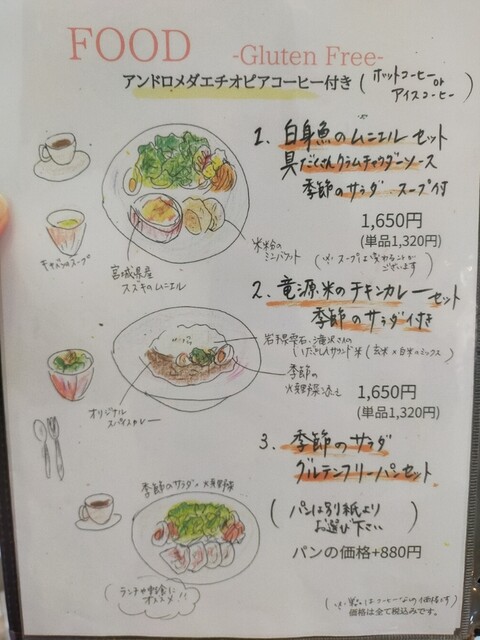 FOOD -Gluten Free-
アンドロメダエチオピアコーヒー付き (ホットコーヒー or アイスコーヒー)
1. 白身魚のムニエルセット
具だくさんクラムチャウダーソース
季節のサラダ スープ付
1,650円
(単品1,320円)
(※スープは変わることがございます)
米粉のミニバンズ
キャベツのスープ
宮城県産
スズキのムニエル
2. 竜源米のチキンカレーセット
季節のサラダ付き
岩手県雫石・滝沢さんの
(玄米×白米のミックス)
季節の
火田野菜添え
オリジナル
スパイスカレー
1,650円
(単品1,320円)
3. 季節のサラダ
グルテンフリーパンセット
(パンは別紙よりお選び下さい)
パンの価格+880円
季節のサラダ
ランチや軽食にオススメ!!
(※単品はコーヒーなしの価格です)
価格は全て税込みです。